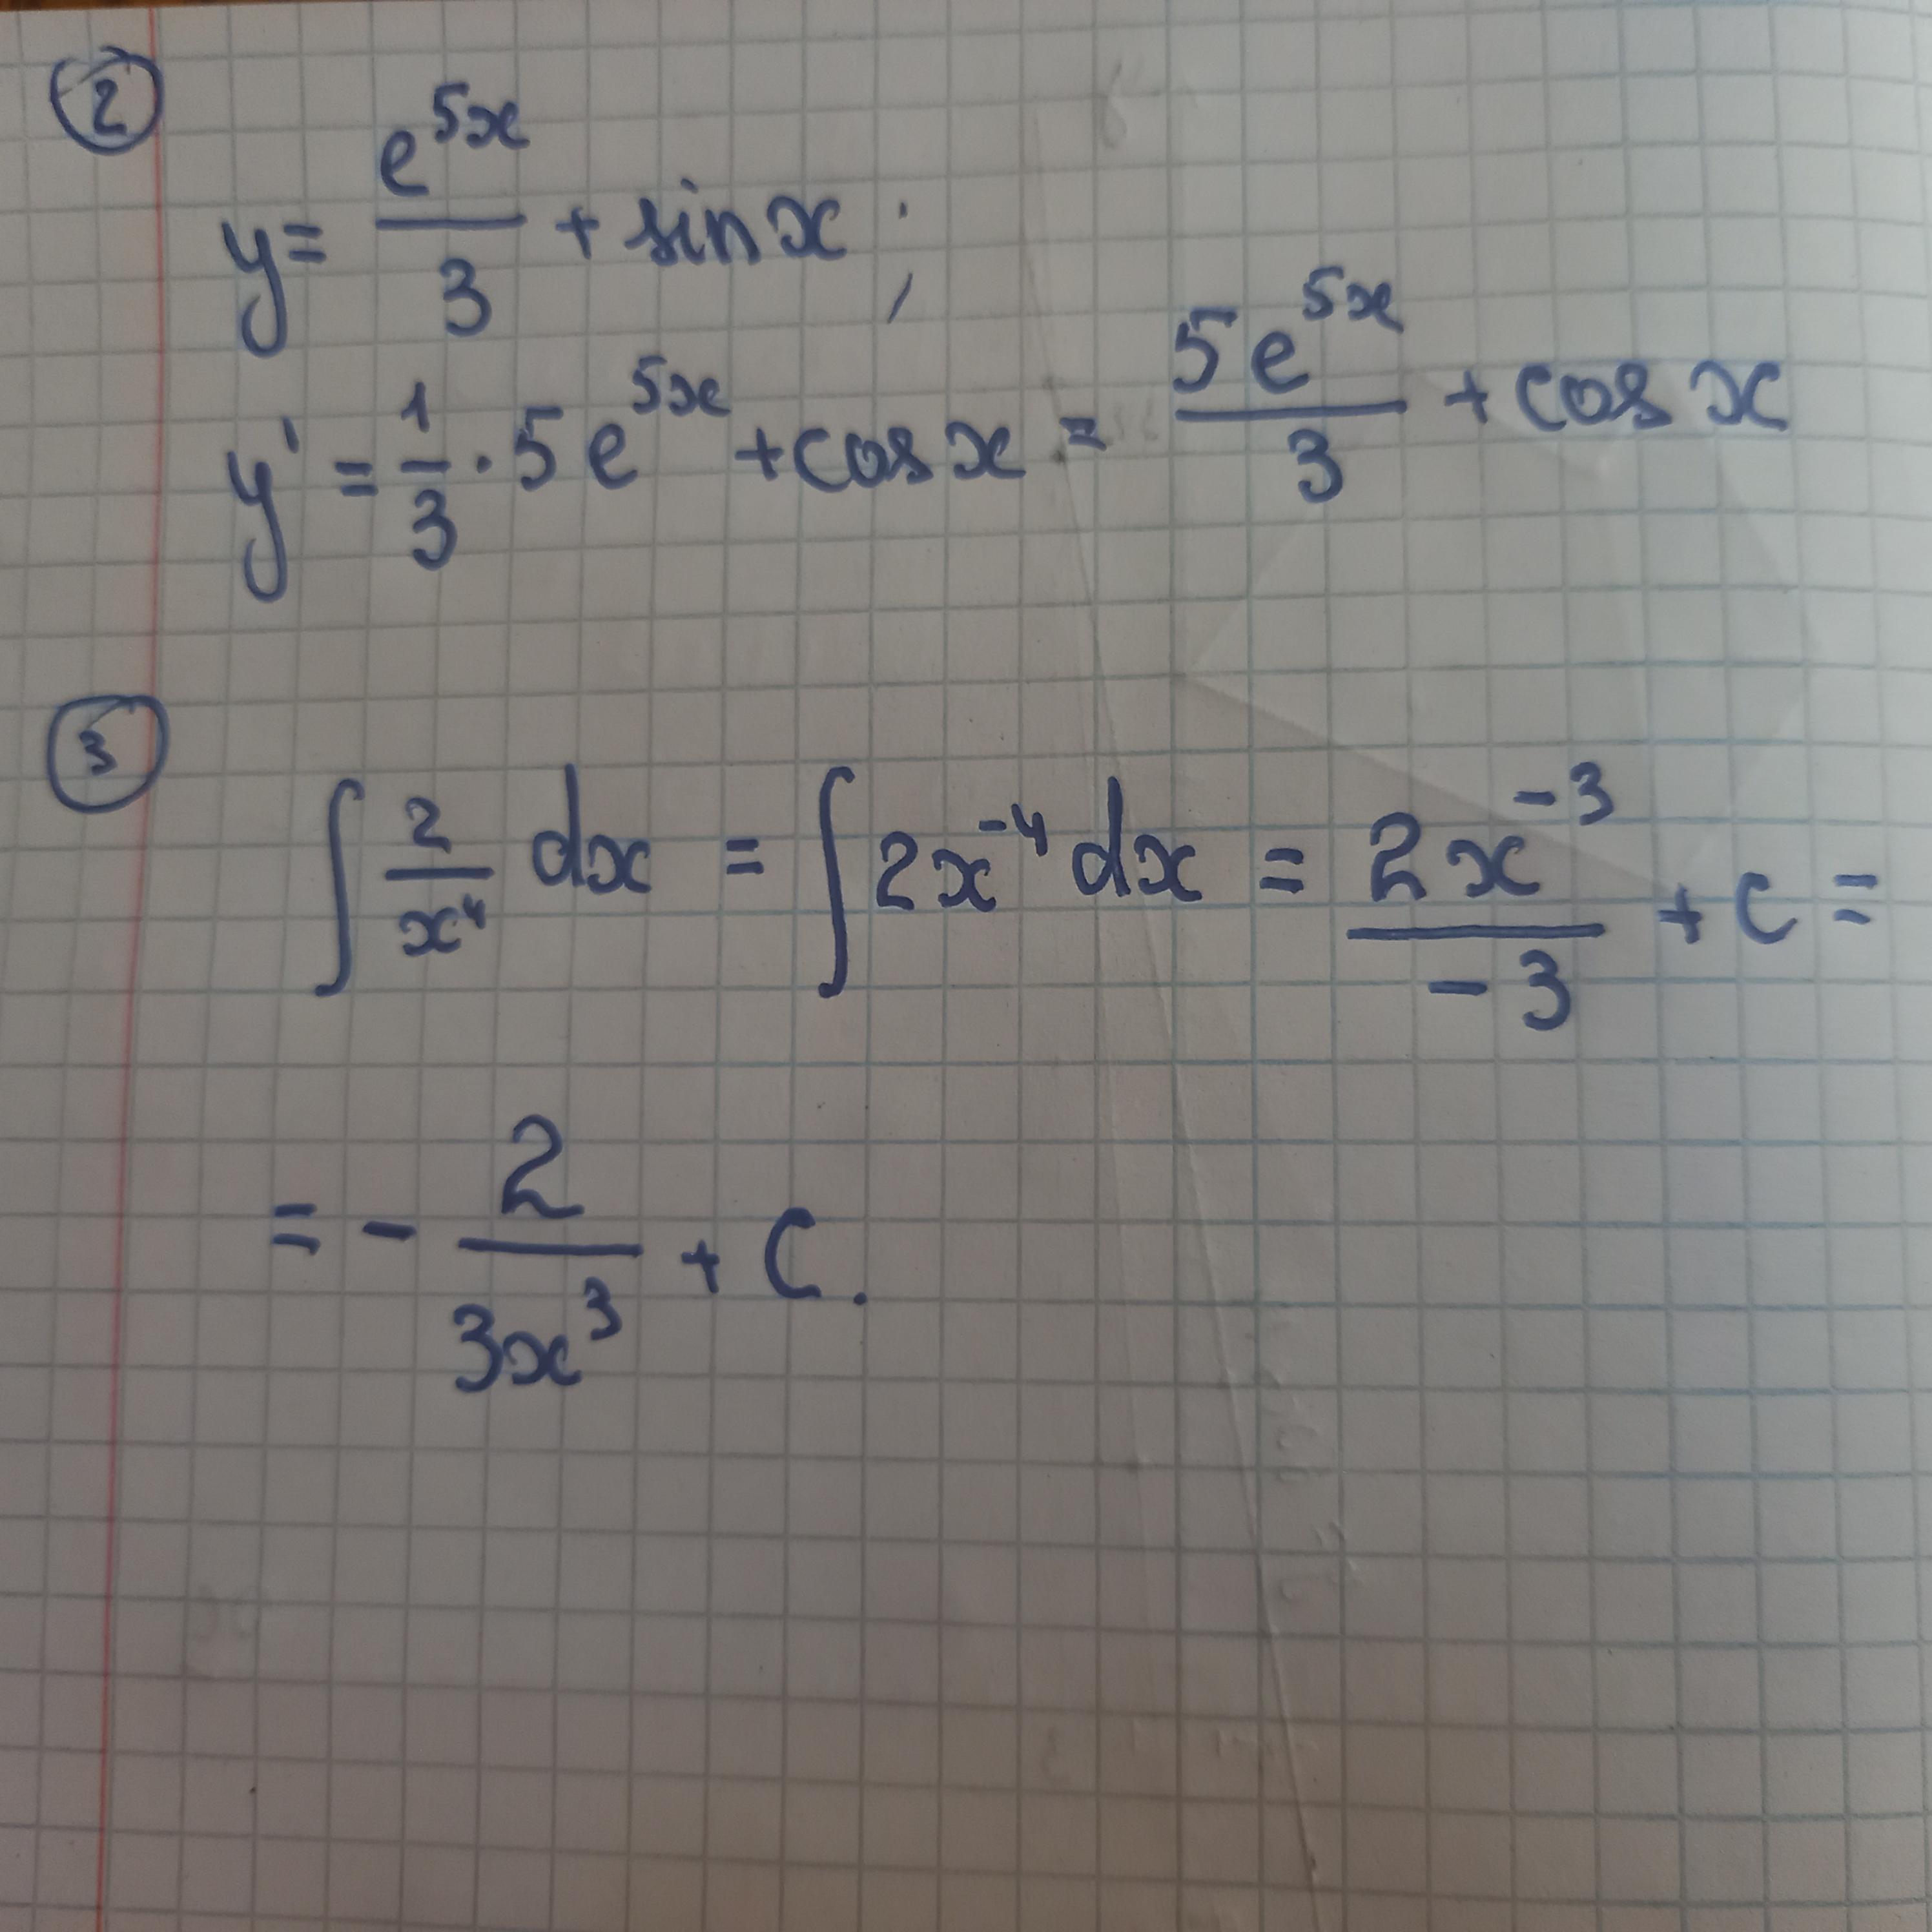 ②
y = e^{5x}/3 + sin x ;
y' = 1/3 · 5e^{5x} + cos x = 5e^{5x}/3 + cos x
③
∫ 2/x⁴ dx = ∫ 2x⁻⁴ dx = 2x⁻³/-3 + C =
= - 2/3x³ + C.